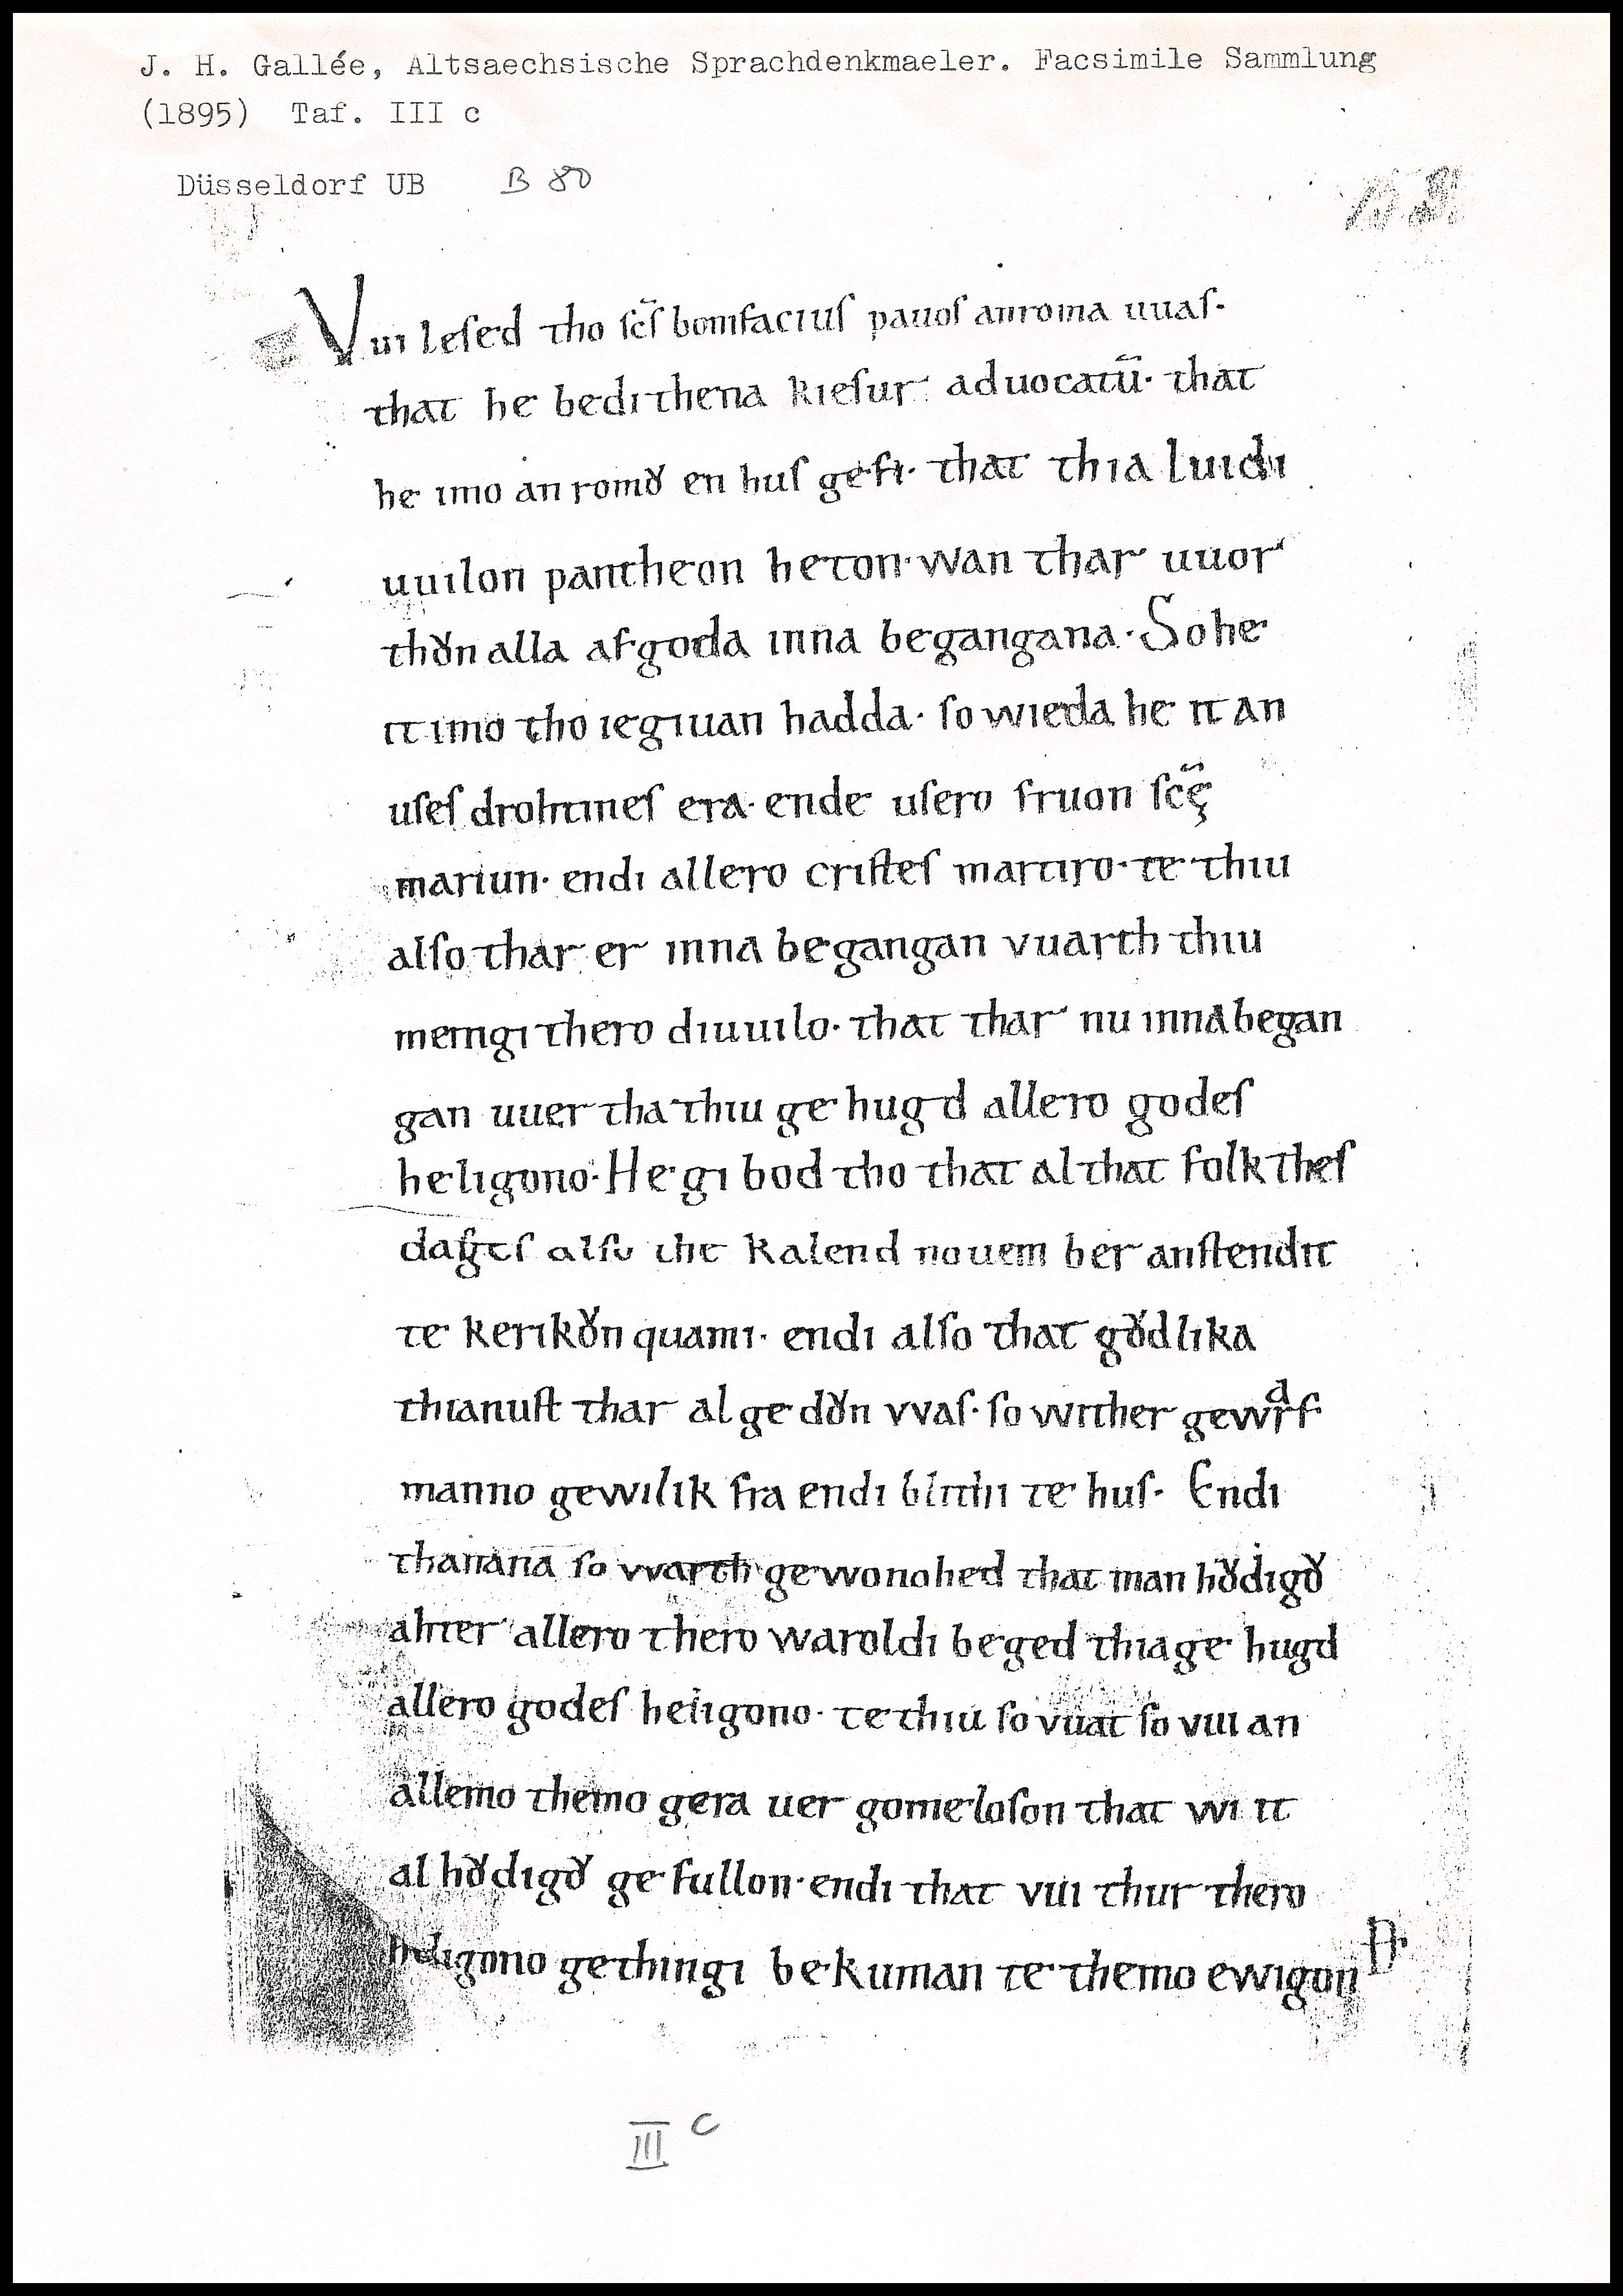 J. H. Gallée, Altsaechsische Sprachdenkmaeler. Facsimile Sammlung
(1895) Taf. III c
Düsseldorf UB B 80
153.
Vui lesed tho sc̄s bonifacius pauos anroma uuas·
that he bedi thena kiesur aduocatū· that
he imo an romo͛ en hus gefi· that thia luidi
uuilon pantheon heton· wan thar uuor
tho͛n alla afgoda inna begangana· So he
it imo tho iegiuan hadda· so wieda he it an
uses drohtines era· ende usero fruon sc̄ę
mariun· endi allero cristes martiro· te thiu
also thar er inna begangan vuarth thiu
menigi thero diuuilo· that thar nu inna began
gan uuertha thiu gehugd allero godes
heligono· He gibod tho that al that folk thes
dages also the kalend nouember anstendit
te keriko͛n quami· endi also that go͛dlika
thianust thar al gedo͛n vvas· so wither gewarf
manno gewilik fra endi blithi te hus· Endi
thanana so vvarth gewonohed that man ho͛digo͛
ahter allero thero waroldi beged thia gehugd
allero godes heligono· te thiu so vuat so vui an
allemo themo gera uergomeloson that wi it
al ho͛digo͛ gefullon· endi that vui thur thero
heligono gethingi bekuman te themo ewigon
III c